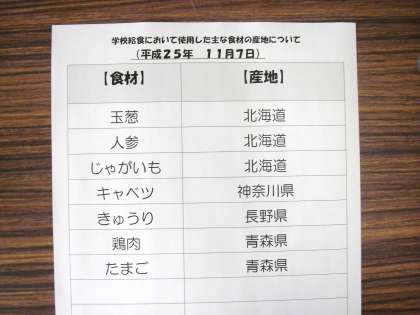 学校給食において使用した主な食材の産地について
（平成２５年　１１月７日）
【食材】　【産地】
玉葱　北海道
人参　北海道
じゃがいも　北海道
キャベツ　神奈川県
きゅうり　長野県
鶏肉　青森県
たまご　青森県